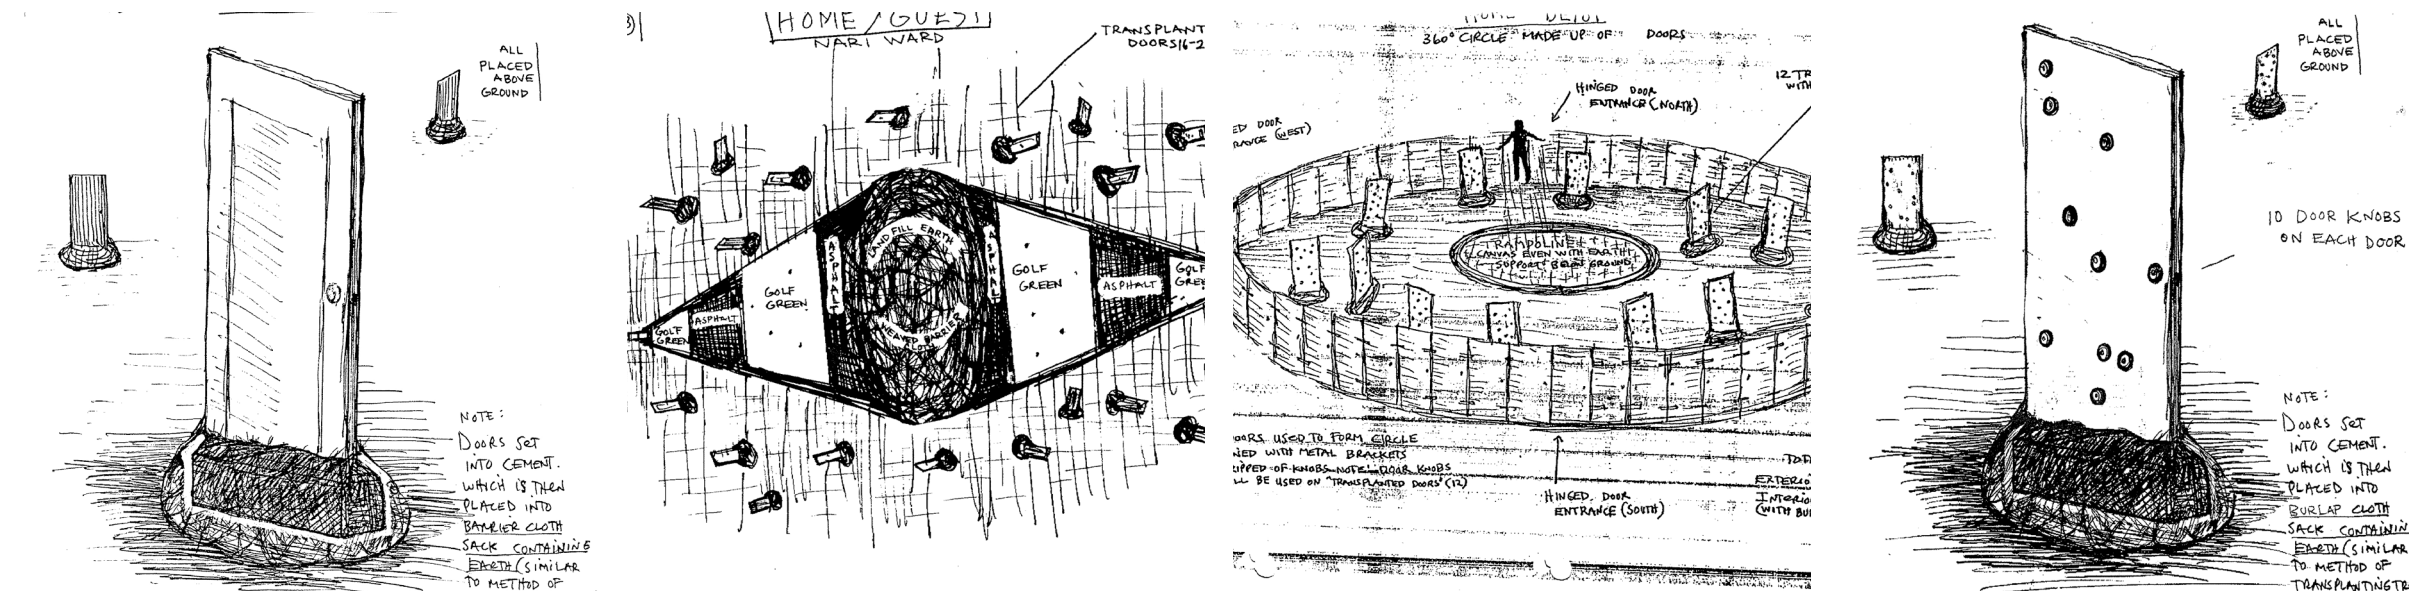 ALL
PLACED
ABOVE
GROUND
NOTE:
DOORS SET
INTO CEMENT.
WHICH IS THEN
PLACED INTO
BARRIER CLOTH
SACK CONTAINING
EARTH (SIMILAR
TO METHOD OF
HOME/GUEST
NARI WARD
TRANSPLANT
DOORS 16-2
LANDFILL EARTH
WEAVED BARRIER
CLOTH
GOLF
GREEN
ASPHALT
GOLF
GREEN
ASPHALT
ASPHALT
GOLF
GREEN
ASPHALT
GOLF
GREE
HOME DEPOT
360° CIRCLE MADE UP OF DOORS
12 TR
WITH
HINGED DOOR
ENTRANCE (NORTH)
ED DOOR
RANCE (WEST)
TRAMPOLINE
CANVAS EVEN WITH EARTH
SUPPORT BEING GROUND
OORS USED TO FORM CIRCLE
NED WITH METAL BRACKETS
IPPED OF KNOBS NOTE: DOOR KNOBS
LL BE USED ON "TRANSPLANTED DOORS" (12)
HINGED DOOR
ENTRANCE (SOUTH)
TOT
EXTERIO
INTERIO
(WITH BUI
ALL
PLACED
ABOVE
GROUND
10 DOOR KNOBS
ON EACH DOOR
NOTE:
DOORS SET
INTO CEMENT.
WHICH IS THEN
PLACED INTO
BURLAP CLOTH
SACK CONTAININ
EARTH (SIMILAR
TO METHOD OF
TRANSPLANTING TR